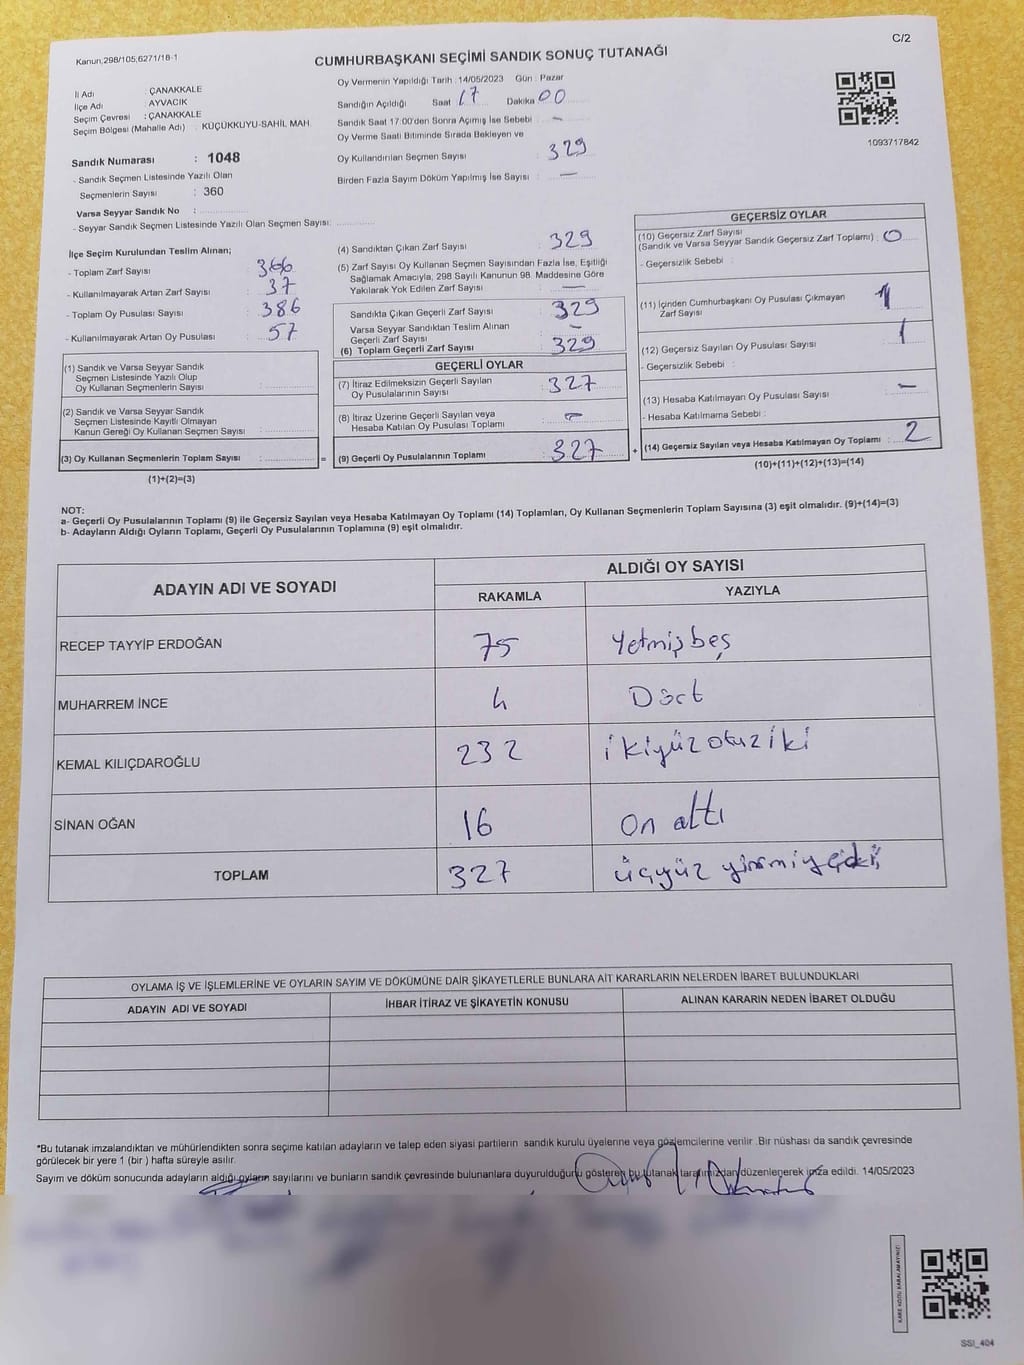 Kanun,298/105;6271/18-1
C/2
CUMHURBAŞKANI SEÇİMİ SANDIK SONUÇ TUTANAĞI
İl Adı : ÇANAKKALE
İlçe Adı : AYVACIK
Seçim Çevresi : ÇANAKKALE
Seçim Bölgesi (Mahalle Adı) : KÜÇÜKKUYU-SAHİL MAH.
Sandık Numarası : 1048
- Sandık Seçmen Listesinde Yazılı Olan
Seçmenlerin Sayısı : 360
Varsa Seyyar Sandık No :
- Seyyar Sandık Seçmen Listesinde Yazılı Olan Seçmen Sayısı:
Oy Vermenin Yapıldığı Tarih : 14/05/2023 Gün : Pazar
Sandığın Açıldığı Saat 17 Dakika 00
Sandık Saat 17:00'den Sonra Açımış İse Sebebi : -
Oy Verme Saati Bitiminde Sırada Bekleyen ve
Oy Kullandırılan Seçmen Sayısı : 329
Birden Fazla Sayım Döküm Yapılmış İse Sayısı : -
1093717842
İlçe Seçim Kurulundan Teslim Alınan;
- Toplam Zarf Sayısı : 366
- Kullanılmayarak Artan Zarf Sayısı : 37
- Toplam Oy Pusulası Sayısı : 386
- Kullanılmayarak Artan Oy Pusulası : 57
(1) Sandık ve Varsa Seyyar Sandık
Seçmen Listesinde Yazılı Olup
Oy Kullanan Seçmenlerin Sayısı :
(2) Sandık ve Varsa Seyyar Sandık
Seçmen Listesinde Kayıtlı Olmayan
Kanun Gereği Oy Kullanan Seçmen Sayısı :
(3) Oy Kullanan Seçmenlerin Toplam Sayısı : =
(1)+(2)=(3)
(4) Sandıktan Çıkan Zarf Sayısı : 329
(5) Zarf Sayısı Oy Kullanan Seçmen Sayısından Fazla İse, Eşitliği
Sağlamak Amacıyla, 298 Sayılı Kanunun 98. Maddesine Göre
Yakılarak Yok Edilen Zarf Sayısı : -
Sandıkta Çıkan Geçerli Zarf Sayısı : 329
Varsa Seyyar Sandıktan Teslim Alınan
Geçerli Zarf Sayısı : -
(6) Toplam Geçerli Zarf Sayısı : 329
GEÇERLİ OYLAR
(7) İtiraz Edilmeksizin Geçerli Sayılan
Oy Pusulalarının Sayısı : 327
(8) İtiraz Üzerine Geçerli Sayılan veya
Hesaba Katılan Oy Pusulası Toplamı : -
(9) Geçerli Oy Pusulalarının Toplamı : 327 +
GEÇERSİZ OYLAR
(10) Geçersiz Zarf Sayısı
(Sandık ve Varsa Seyyar Sandık Geçersiz Zarf Toplamı) : 0
- Geçersizlik Sebebi :
(11) İçinden Cumhurbaşkanı Oy Pusulası Çıkmayan
Zarf Sayısı : 1
(12) Geçersiz Sayılan Oy Pusulası Sayısı : 1
- Geçersizlik Sebebi :
(13) Hesaba Katılmayan Oy Pusulası Sayısı : -
- Hesaba Katılmama Sebebi :
(14) Geçersiz Sayılan veya Hesaba Katılmayan Oy Toplamı : 2
(10)+(11)+(12)+(13)=(14)
NOT:
a- Geçerli Oy Pusulalarının Toplamı (9) ile Geçersiz Sayılan veya Hesaba Katılmayan Oy Toplamı (14) Toplamları, Oy Kullanan Seçmenlerin Toplam Sayısına (3) eşit olmalıdır. (9)+(14)=(3)
b- Adayların Aldığı Oyların Toplamı, Geçerli Oy Pusulalarının Toplamına (9) eşit olmalıdır.
ADAYIN ADI VE SOYADI
ALDIĞI OY SAYISI
RAKAMLA YAZIYLA
RECEP TAYYİP ERDOĞAN 75 Yetmişbeş
MUHARREM İNCE 4 Dört
KEMAL KILIÇDAROĞLU 232 ikiyüzotuziki
SİNAN OĞAN 16 On altı
TOPLAM 327 üçyüz yirmiyedi
OYLAMA İŞ VE İŞLEMLERİNE VE OYLARIN SAYIM VE DÖKÜMÜNE DAİR ŞİKAYETLERLE BUNLARA AİT KARARLARIN NELERDEN İBARET BULUNDUKLARI
ADAYIN ADI VE SOYADI İHBAR İTİRAZ VE ŞİKAYETİN KONUSU ALINAN KARARIN NEDEN İBARET OLDUĞU
*Bu tutanak imzalandıktan ve mühürlendikten sonra seçime katılan adayların ve talep eden siyasi partilerin sandık kurulu üyelerine veya gözlemcilerine verilir .Bir nüshası da sandık çevresinde
görülecek bir yere 1 (bir ) hafta süreyle asılır.
Sayım ve döküm sonucunda adayların aldığı oyların sayılarını ve bunların sandık çevresinde bulunanlara duyurulduğunu gösteren bu tutanak tarafımızdan düzenlenerek imza edildi. 14/05/2023
KARE KODU KARALAMAYINIZ!
SSI_404